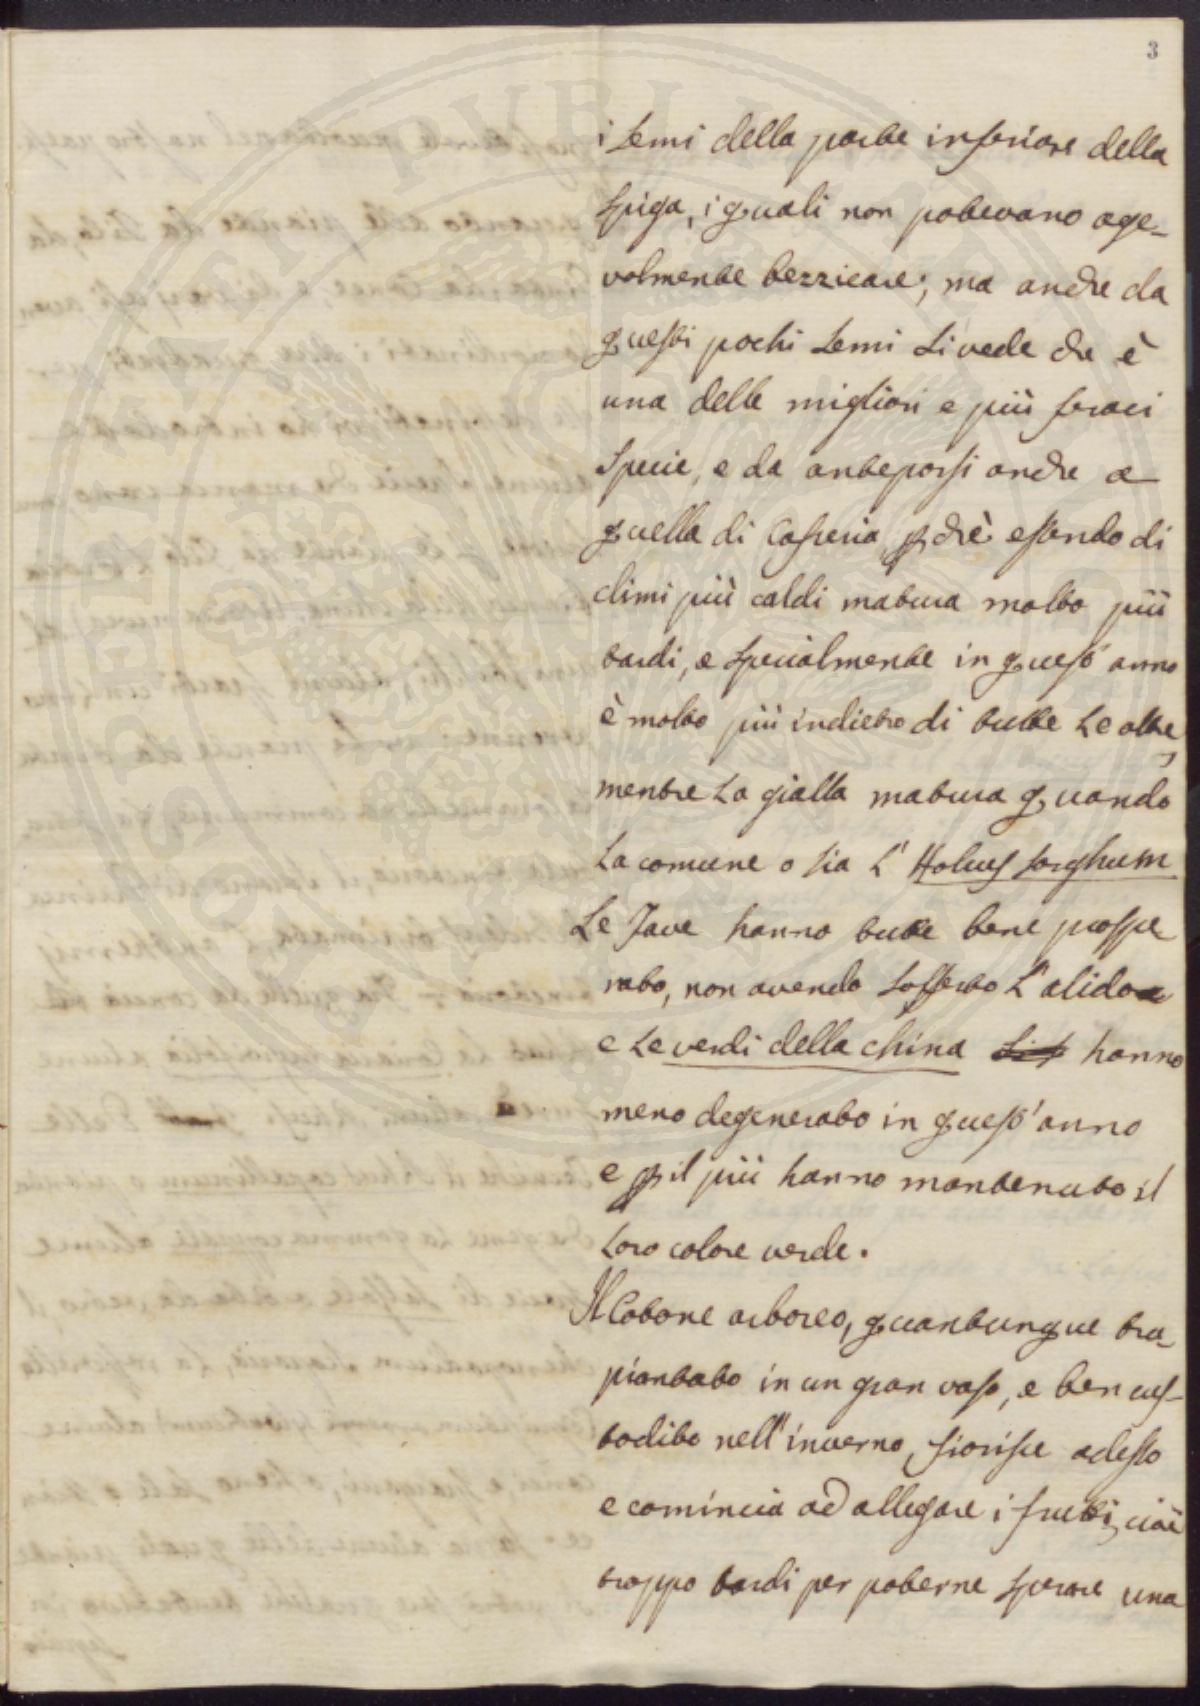 3
i semi della parte inferiore della
spiga, i quali non potevano age-
volmente bezzicare; ma anche da
questi pochi semi si vede che è
una delle migliori e più feraci
specie, e da anteporsi anche a
quella di Cafreria, p chè essendo di
climi più caldi matura molto più
tardi, e specialmente in quest' anno
è molto più indietro di tutte le altre,
mentre la gialla matura quando
la comune o sia l' Holcus sorghum
Le Fave hanno tutte bene prospe
rato, non avendo sofferto l' alido
e le verdi della china hanno
meno degenerato in quest' anno
e p il più hanno mantenuto il
loro colore verde.
Il Cotone arboreo, quantunque tra-
piantato in un gran vaso, e ben cus-
todito nell' inverno, fiorisce adesso
e comincia ad allegare i frutti, cioè
troppo tardi per poterne sperare una